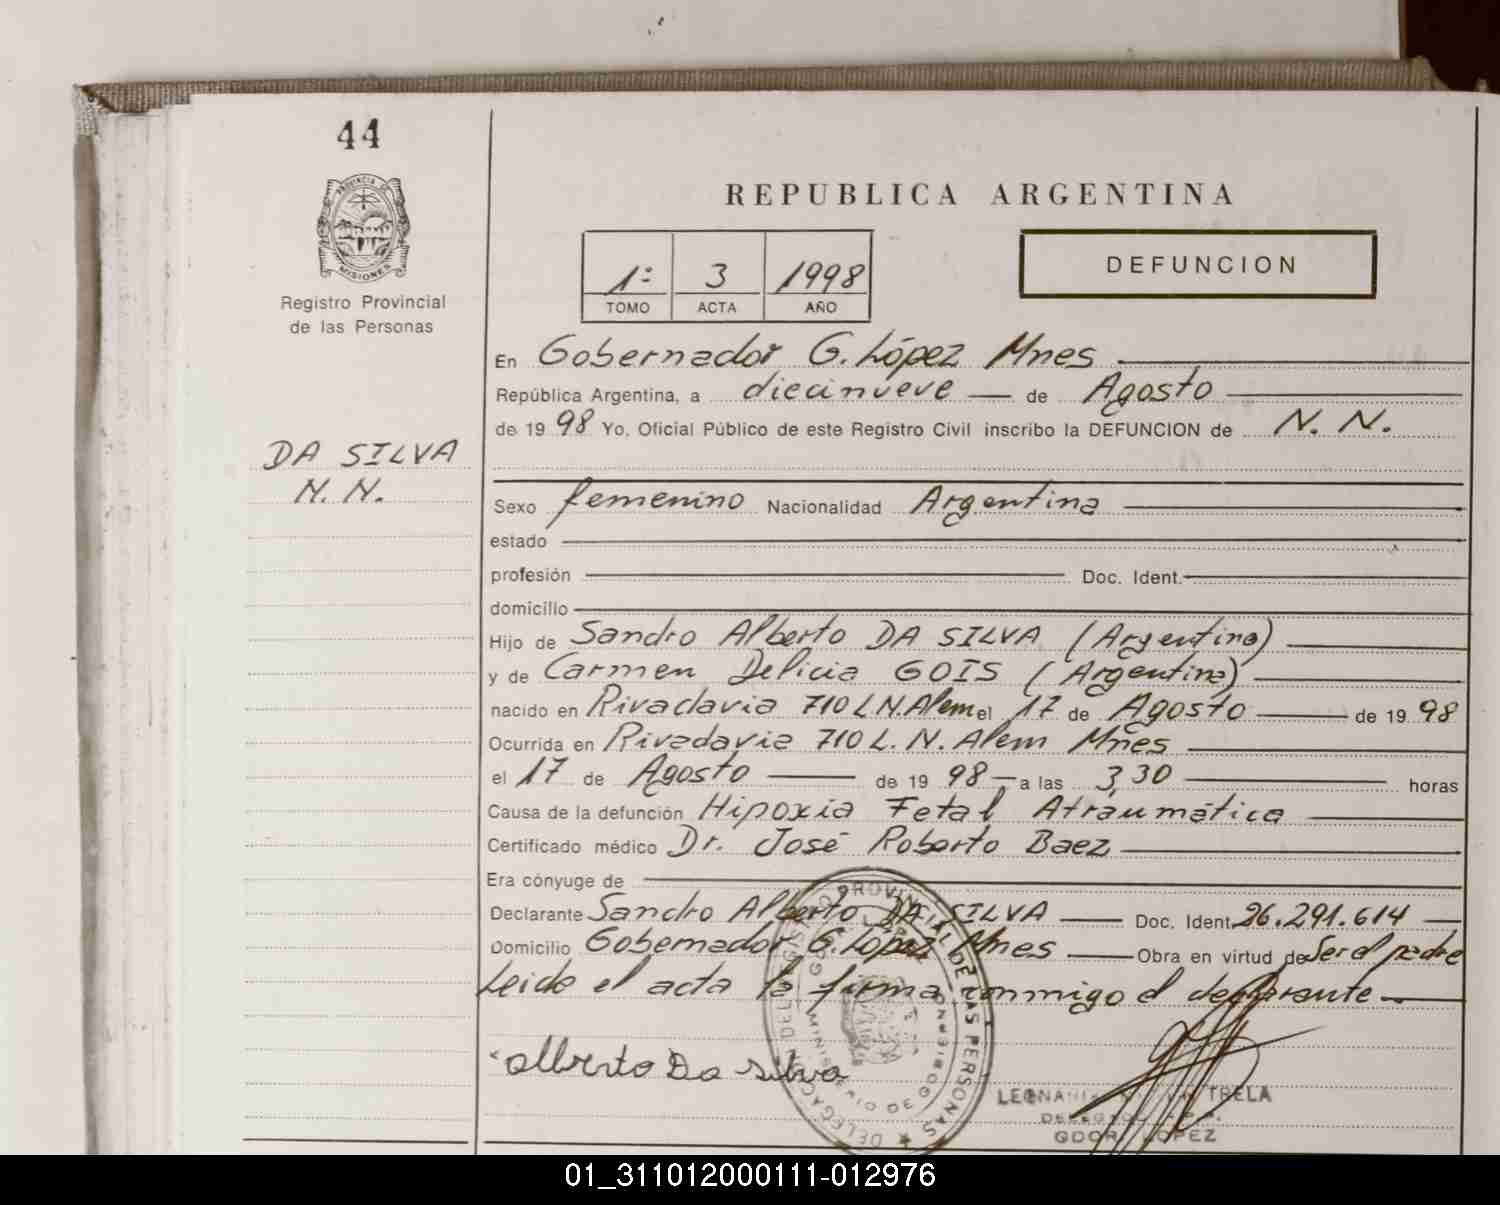 44
PROVINCIA DE
MISIONES
Registro Provincial
de las Personas
DA SILVA
N. N.
REPUBLICA ARGENTINA
1º 3 1998
TOMO ACTA AÑO
DEFUNCION
En Gobernador G. López Mnes
República Argentina, a diecinueve de Agosto
de 19 98 Yo, Oficial Público de este Registro Civil inscribo la DEFUNCION de N. N.
Sexo femenino Nacionalidad Argentina
estado
profesión Doc. Ident.
domicilio
Hijo de Sandro Alberto DA SILVA (Argentina)
y de Carmen Delicia GOIS (Argentina)
nacido en Rivadavia 710 L N. Alem el 17 de Agosto de 19 98
Ocurrida en Rivadavia 710 L. N. Alem Mnes
el 17 de Agosto de 19 98 a las 3,30 horas
Causa de la defunción Hipoxia Fetal Atraumática
Certificado médico Dr. José Roberto Baez
Era cónyuge de
Declarante Sandro Alberto DA SILVA Doc. Ident. 26.291.614
Domicilio Gobernador G. López Mnes Obra en virtud de Ser el padre
Leida el acta la firma conmigo el declarante
Alberto Da Silva
REGISTRO PROVINCIAL DE LAS PERSONAS
MINISTERIO DE GOBIERNO
TRELA
GDOR. LOPEZ
01_311012000111-012976